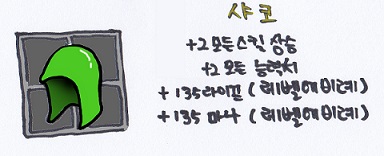 샤코
+2 모든스킬 상승
+2 모든 능력치
+135 라이프 (레벨에비례)
+135 마나 (레벨에비례)